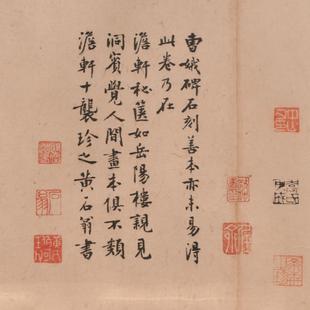 曹娥碑石刻善本亦未易得
此卷乃在
澹軒祕篋如岳陽樓親見
洞賓覺人間畫本俱不類
澹軒十襲珍之黄石翁書